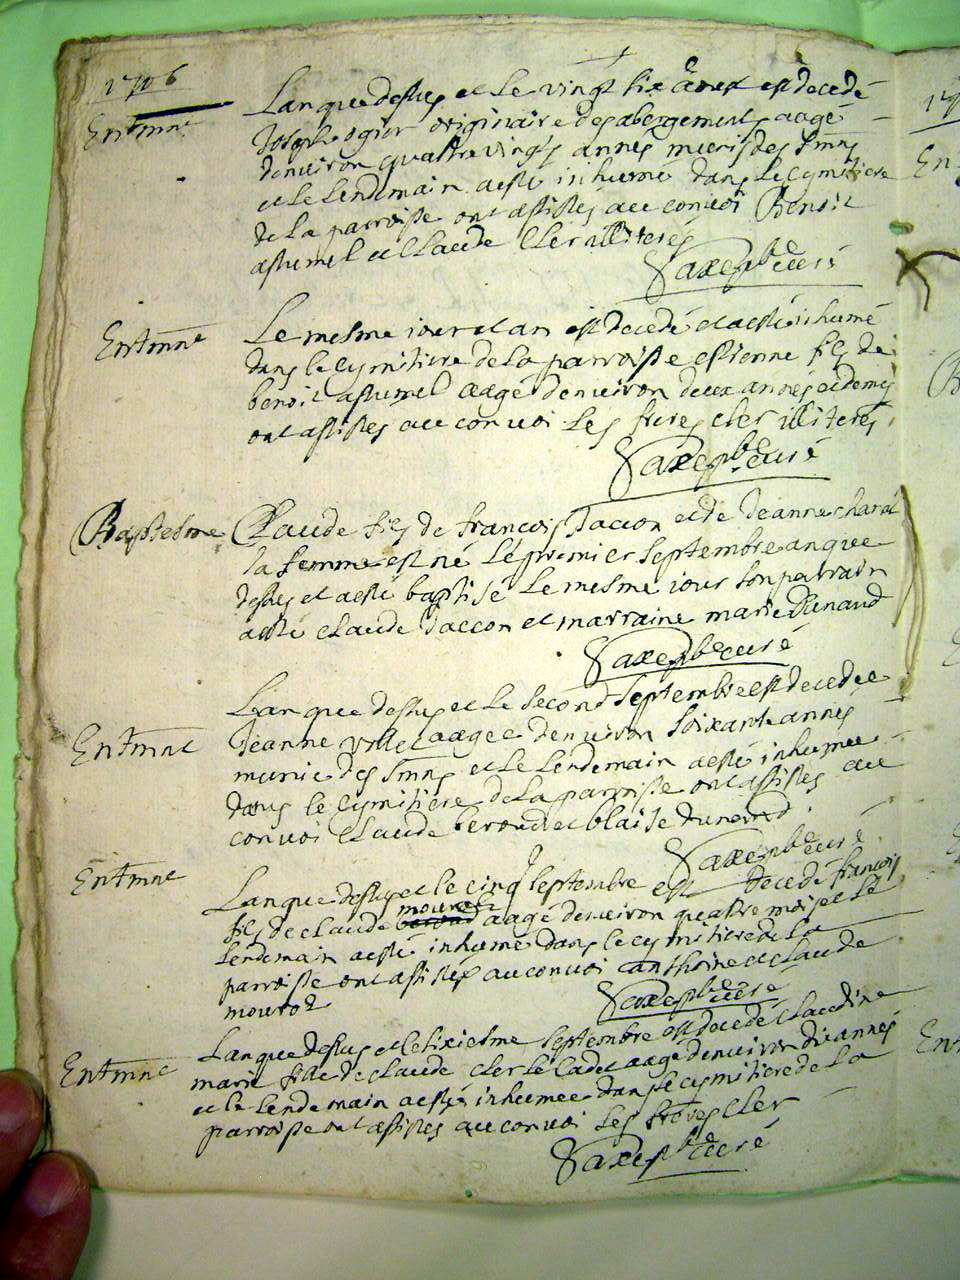 1706
Entrmnt
Lan que dessus et le vingt six aoust est decedé
Joseph ogier originaire des abergements aagé
denuiron quattre vingts annés munis des Smns
et le lendemain a esté inhumé dans le cymitiere
de la parroisse ont assistés au conuoi Benoit
astumel et Claude Cler illiterés
Saxe pbre curé
Entrmnt
Le mesme iour et an est decedé et a esté inhumé
dans le cymitiere de la parroisse estienne fils de
benoit astumel aagé denuiron deux annés et demis
ont assistés au conuoi les freres cler illiterés
Saxe pbre curé
Baptesme
Claude fils de francois Jaccon et de Jeanne
sa femme est né le premier septembre an que
dessus et a esté baptisé le mesme iour son parrain
a esté claude Jaccon et marraine marie Dunand
Saxe pbre curé
Entrmnt
Lan que dessus et le second septembre est decedée
Jeanne aagée denuiron soixante annés
munie des Smns et le lendemain a esté inhumée
dans le cymitiere de la parroisse ont assistés au
conuoi Claude et blaise dunand
Saxe pbre curé
Entrmnt
Lan que dessus et le cinq septembre est decedé francois
fils de claude mourot aagé denuiron quattre mois et le
lendemain a esté inhumé dans le cymitiere de la
parroisse ont assistés au conuoi anthoine et claude
mourot
Saxe pbre curé
Entrmnt
Lan que dessus et le sixiesme septembre est decedé claudine
marie fille de claude cler le cadet aagé denuiron dix annés
et le lendemain a esté inhumee dans le cymitiere de la
parroisse ont assistés au conuoi les freres Cler
Saxe pbre curé